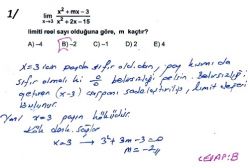 1/
lim x→3 x² + mx - 3 / x² + 2x - 15
limiti reel sayı olduğuna göre, m kaçtır?
A) -4 B) -2 C) -1 D) 2 E) 4
x=3 için payda sıfır oldu, pay kısmı da
sıfır olmalı ki 0/0 belirsizliği gelsin. Belirsizliği
getiren (x-3) çarpanı sadeleştirilip, limit değeri
bulunur.
Yani x=3 payın köküdür.
Kök denk. sağlar
x=3 → 3²+3m-3=0
m=-2
CEVAP: B